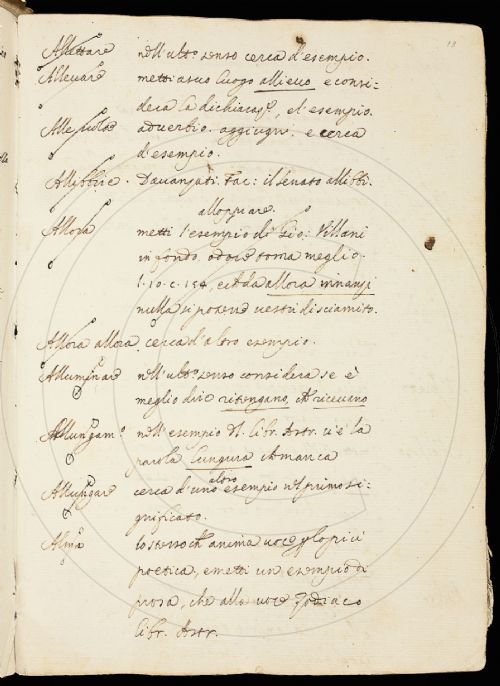 18
Allettare nell'ult.º senso cerca d'esempio.
Allevare metti a suo luogo allievo e consi:
dera la dichiaraz.e, e l'esempio.
adverbio. aggiugni, e cerca
d'esempio.
Allibbire. Davanzati. Tac: il Senato allibbì.
alloppiare.
Allora metti l'esempio di Gio: Villani
in fondo, dove torna meglio.
l. 10. c. 154. ed da allora innanzi
nulla si potesse vestir di sciamito.
Allora allora. cerca d'altro esempio.
Alluminare nell'ult.º senso considera se è
meglio dire ritengano, che ricevano
Allungam.º nell'esempio del libr. Astr. v'è la
parola lungura che manca
altro
Allungare cerca d'uno esempio nel primo si:
gnificato.
Alma lo stesso che anima voce
poetica, e metti un esempio di
prosa, che alla voce Zodiaco
libr. Astr.